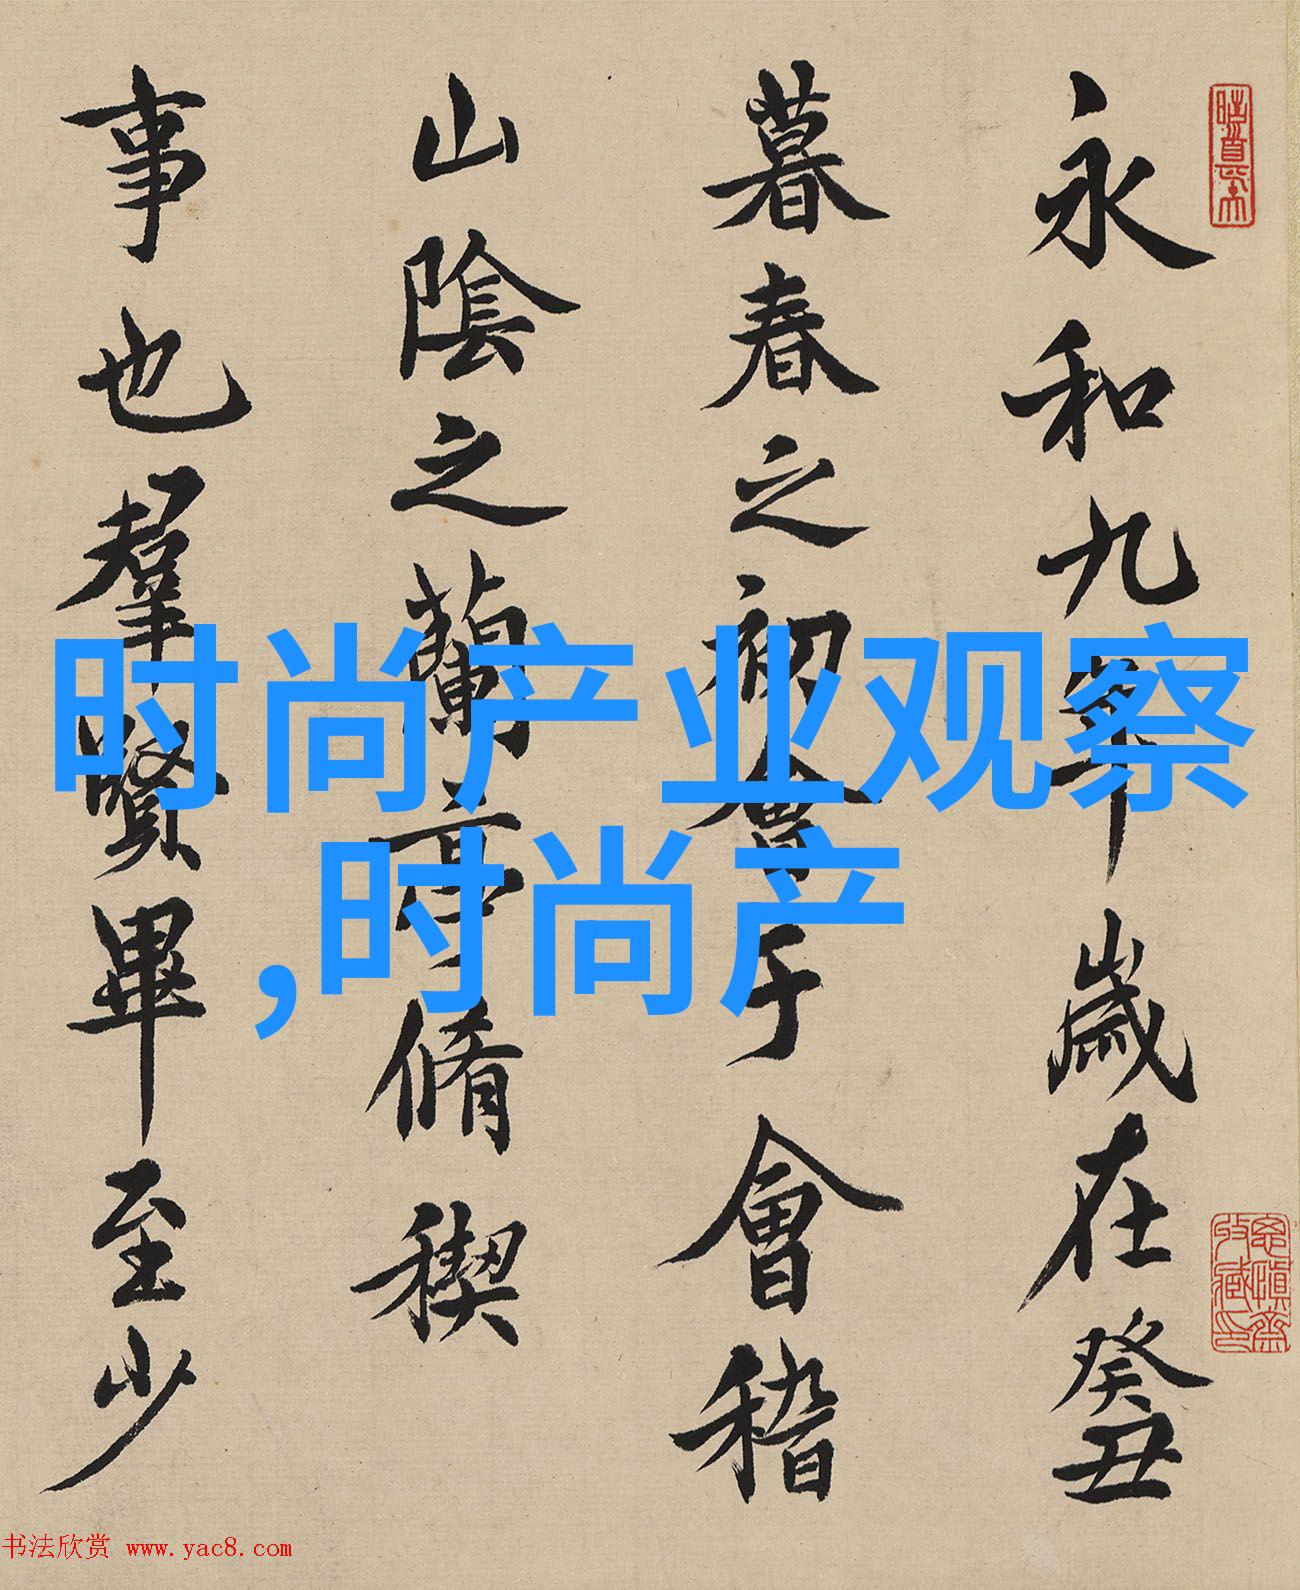 永和九年歲在癸丑
暮春之初會于會稽
山陰之蘭亭脩稧
事也羣賢畢至少
时尚产业观察
,时尚产
书法欣赏 www.yac8.com